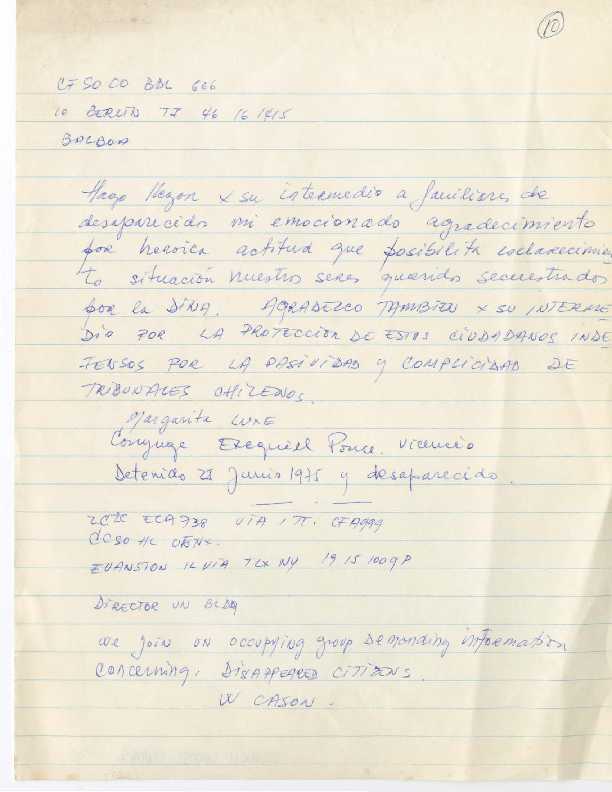 10
CFSOCO BDL 666
10 BERLIN TF 46 16 1415
BALBOA
Hago llegar x su intermedio a familiares de
desaparecidos mi emocionado agradecimiento
por heroica actitud que posibilita esclarecimien
to situación nuestros seres queridos secuestrados
por la DINA. AGRADEZCO TAMBIEN x SU INTERME
DIO POR LA PROTECCION DE ESTOS CIUDADANOS INDE
FENSOS POR LA PASIVIDAD y COMPLICIDAD DE
TRIBUNALES CHILENOS.
Margarita
Conyuge Ezequiel Ponce. Vicencio
Detenido Junio 1975 y desaparecido.
ZCZC ECA738 VIA ITT. CFA999
EVANSTON IL VIA TLX NY 19 15 1009P
DIRECTOR UN BLDG
We join UN occupying group Demanding information
Concerning. DISAPPEARED CITIZENS.
W CASON.